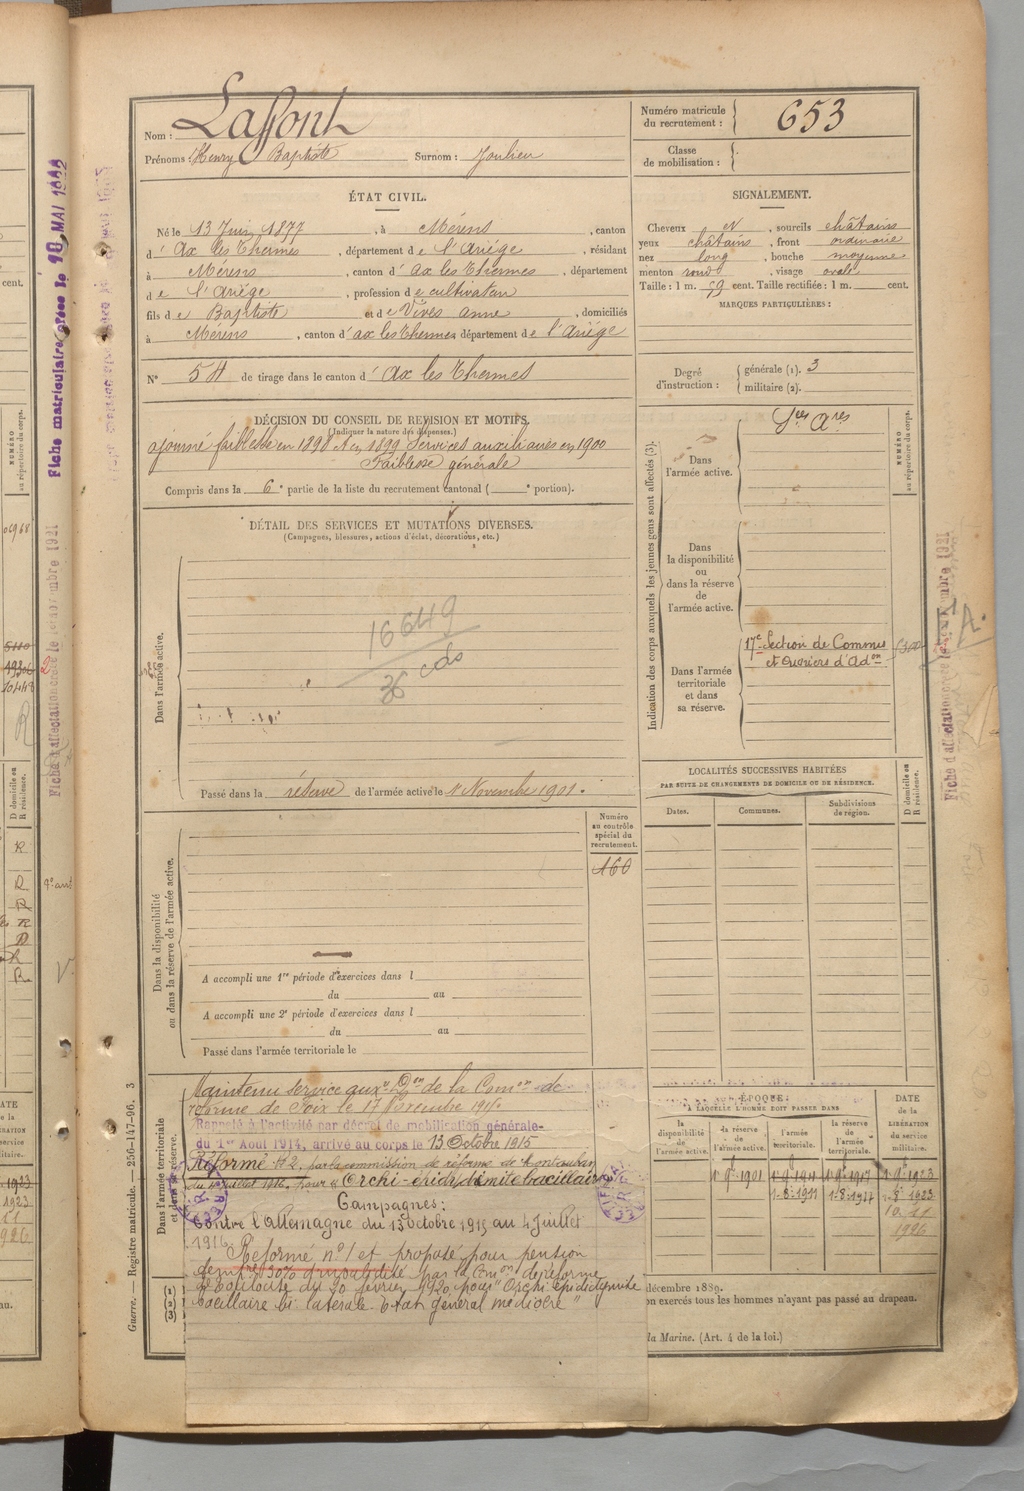 Nom : Laffont
Prénoms : Henry Baptiste Surnom : Joulieu
Numéro matricule du recrutement : 653
Classe de mobilisation :
ÉTAT CIVIL.
Né le 13 Juin 1877, à Mérens, canton
d'Ax les Thermes, département de l'Ariège, résidant
à Mérens, canton d'ax les Thermes, département
de l'Ariège, profession de cultivateur
fils de Baptiste et de Vives anne, domiciliés
à Mérens, canton d'ax les Thermes département de l'Ariège
N° 54 de tirage dans le canton d'Ax les Thermes
SIGNALEMENT.
Cheveux N, sourcils châtains
yeux châtains, front ordinaire
nez long, bouche moyenne
menton rond, visage ovale
Taille : 1 m. 59 cent. Taille rectifiée : 1 m. cent.
MARQUES PARTICULIÈRES :
Degré d'instruction : générale (1). 3
militaire (2).
DÉCISION DU CONSEIL DE REVISION ET MOTIFS.
(Indiquer la nature des dispenses.)
ajourné faiblesse en 1898 et en 1899 Services auxiliaires en 1900
Faiblesse générale
Compris dans la 6e partie de la liste du recrutement cantonal ( e portion).
DÉTAIL DES SERVICES ET MUTATIONS DIVERSES.
(Campagnes, blessures, actions d'éclat, décorations, etc.)
Dans l'armée active.
16649
36 cds
Passé dans la réserve de l'armée active le 1 Novembre 1901.
Indication des corps auxquels les jeunes gens sont affectés (3).
NUMÉRO au répertoire du corps.
Dans l'armée active.
Ses Ares
Dans la disponibilité ou dans la réserve de l'armée active.
Dans l'armée territoriale et dans sa réserve.
17e Section de Commis
et Ouvriers d'Adon
LOCALITÉS SUCCESSIVES HABITÉES
PAR SUITE DE CHANGEMENTS DE DOMICILE OU DE RÉSIDENCE.
Dates. Communes. Subdivisions de région. D domicile ou R résidence.
Dans la disponibilité ou dans la réserve de l'armée active.
Numéro au contrôle spécial du recrutement.
160
A accompli une 1re période d'exercices dans l
du au
A accompli une 2e période d'exercices dans l
du au
Passé dans l'armée territoriale le
Dans l'armée territoriale et dans sa réserve.
Maintenu service auxre Don de la Comon de
réforme de Foix le 17 Novembre 1914.
Rappelé à l'activité par décret de mobilisation générale
du 1er Aout 1914, arrivé au corps le 13 Octobre 1915
Réformé n°2 par la commission de réforme de Montauban
du 4 juillet 1916, pour "Orchi-épididymite bacillaire
Campagnes:
Contre l'Allemagne du 13 octobre 1915 au 4 Juillet
1916.
Réformé n°1 et proposé pour pension
30% d'invalidité par la Comon de réforme
de Toulouse du 20 février 1920 pour "Orchi épididymite
bacillaire bi latérale. Etat général médiocre"
ÉPOQUE
À LAQUELLE L'HOMME DOIT PASSER DANS
la disponibilité de l'armée active. la réserve de l'armée active. l'armée territoriale. la réserve de l'armée territoriale.
DATE de la LIBÉRATION du service militaire.
décembre 1889.
on exercés tous les hommes n'ayant pas passé au drapeau.
la Marine. (Art. 4 de la loi.)
Guerre. — Registre matricule. — 256-147-96. 3
Fiche matriculaire
10 MAI 1922